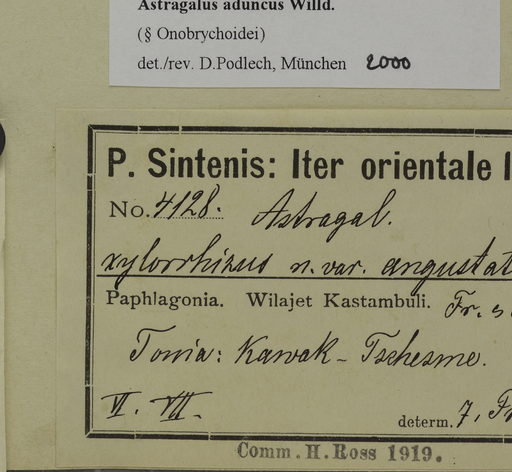 Astragalus aduncus Willd.
(§ Onobrychoidei)
det./rev. D.Podlech, München 2000
P. Sintenis: Iter orientale
No. 4128. Astragal.
xylorrhizus n. var. angustat
Paphlagonia. Wilajet Kastambuli. Fr. s
Tonia: Kawak-Tschesme.
VI. VII.
determ. 7. Fr
Comm. H. Ross 1919.